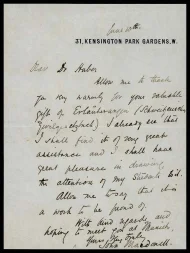 June 10th
31, KENSINGTON PARK GARDENS. W.
Dear Dr Huber
Allow me to thank
you very warmly for your valuable
gift of Erläuterungen
I already see that
I shall find it of very great
assistance and I shall have
great pleasure in drawing
the attention of my Students to it.
Allow me to say that it is
a work to be proud of.
With kind regards, and
hoping to meet you at Munich,
Yours very truly,
John Macdonell.